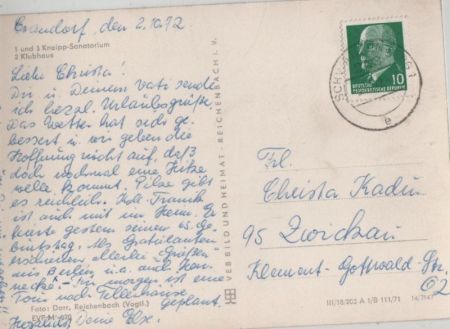 den 2.10.72
1 und 3 Kneipp-Sanatorium
2 Klubhaus
Liebe Christa!
Dir u. Deinem Vati sende
ich herzl. Urlaubsgrüße.
Das Wetter hat sich ge-
bessert u. wir geben die
Hoffnung nicht auf, daß
doch nochmal eine Hitze
welle kommt. Pilze gibt
es reichlich. Koll. Frank
ist auch mit im Heim. Er
feierte gestern seinen 65. Ge-
burtstag. Als Gratulanten
erschienen allerlei Größen
aus Berlin u. a. auch Harn-
necke. Für morgen ist eine
Tour nach geplant.
Foto: Darr, Reichenbach (Vogtl.)
Herzlichst Deine Ilse.
VEB BILD UND HEIMAT · REICHENBACH I. V.
DEUTSCHE
DEMOKRATISCHE REPUBLIK
10
e
Frl.
Christa Kadur
95 Zwickau
Klement-Gottwald-Str.
62
III/18/203 A 1/B 111/71